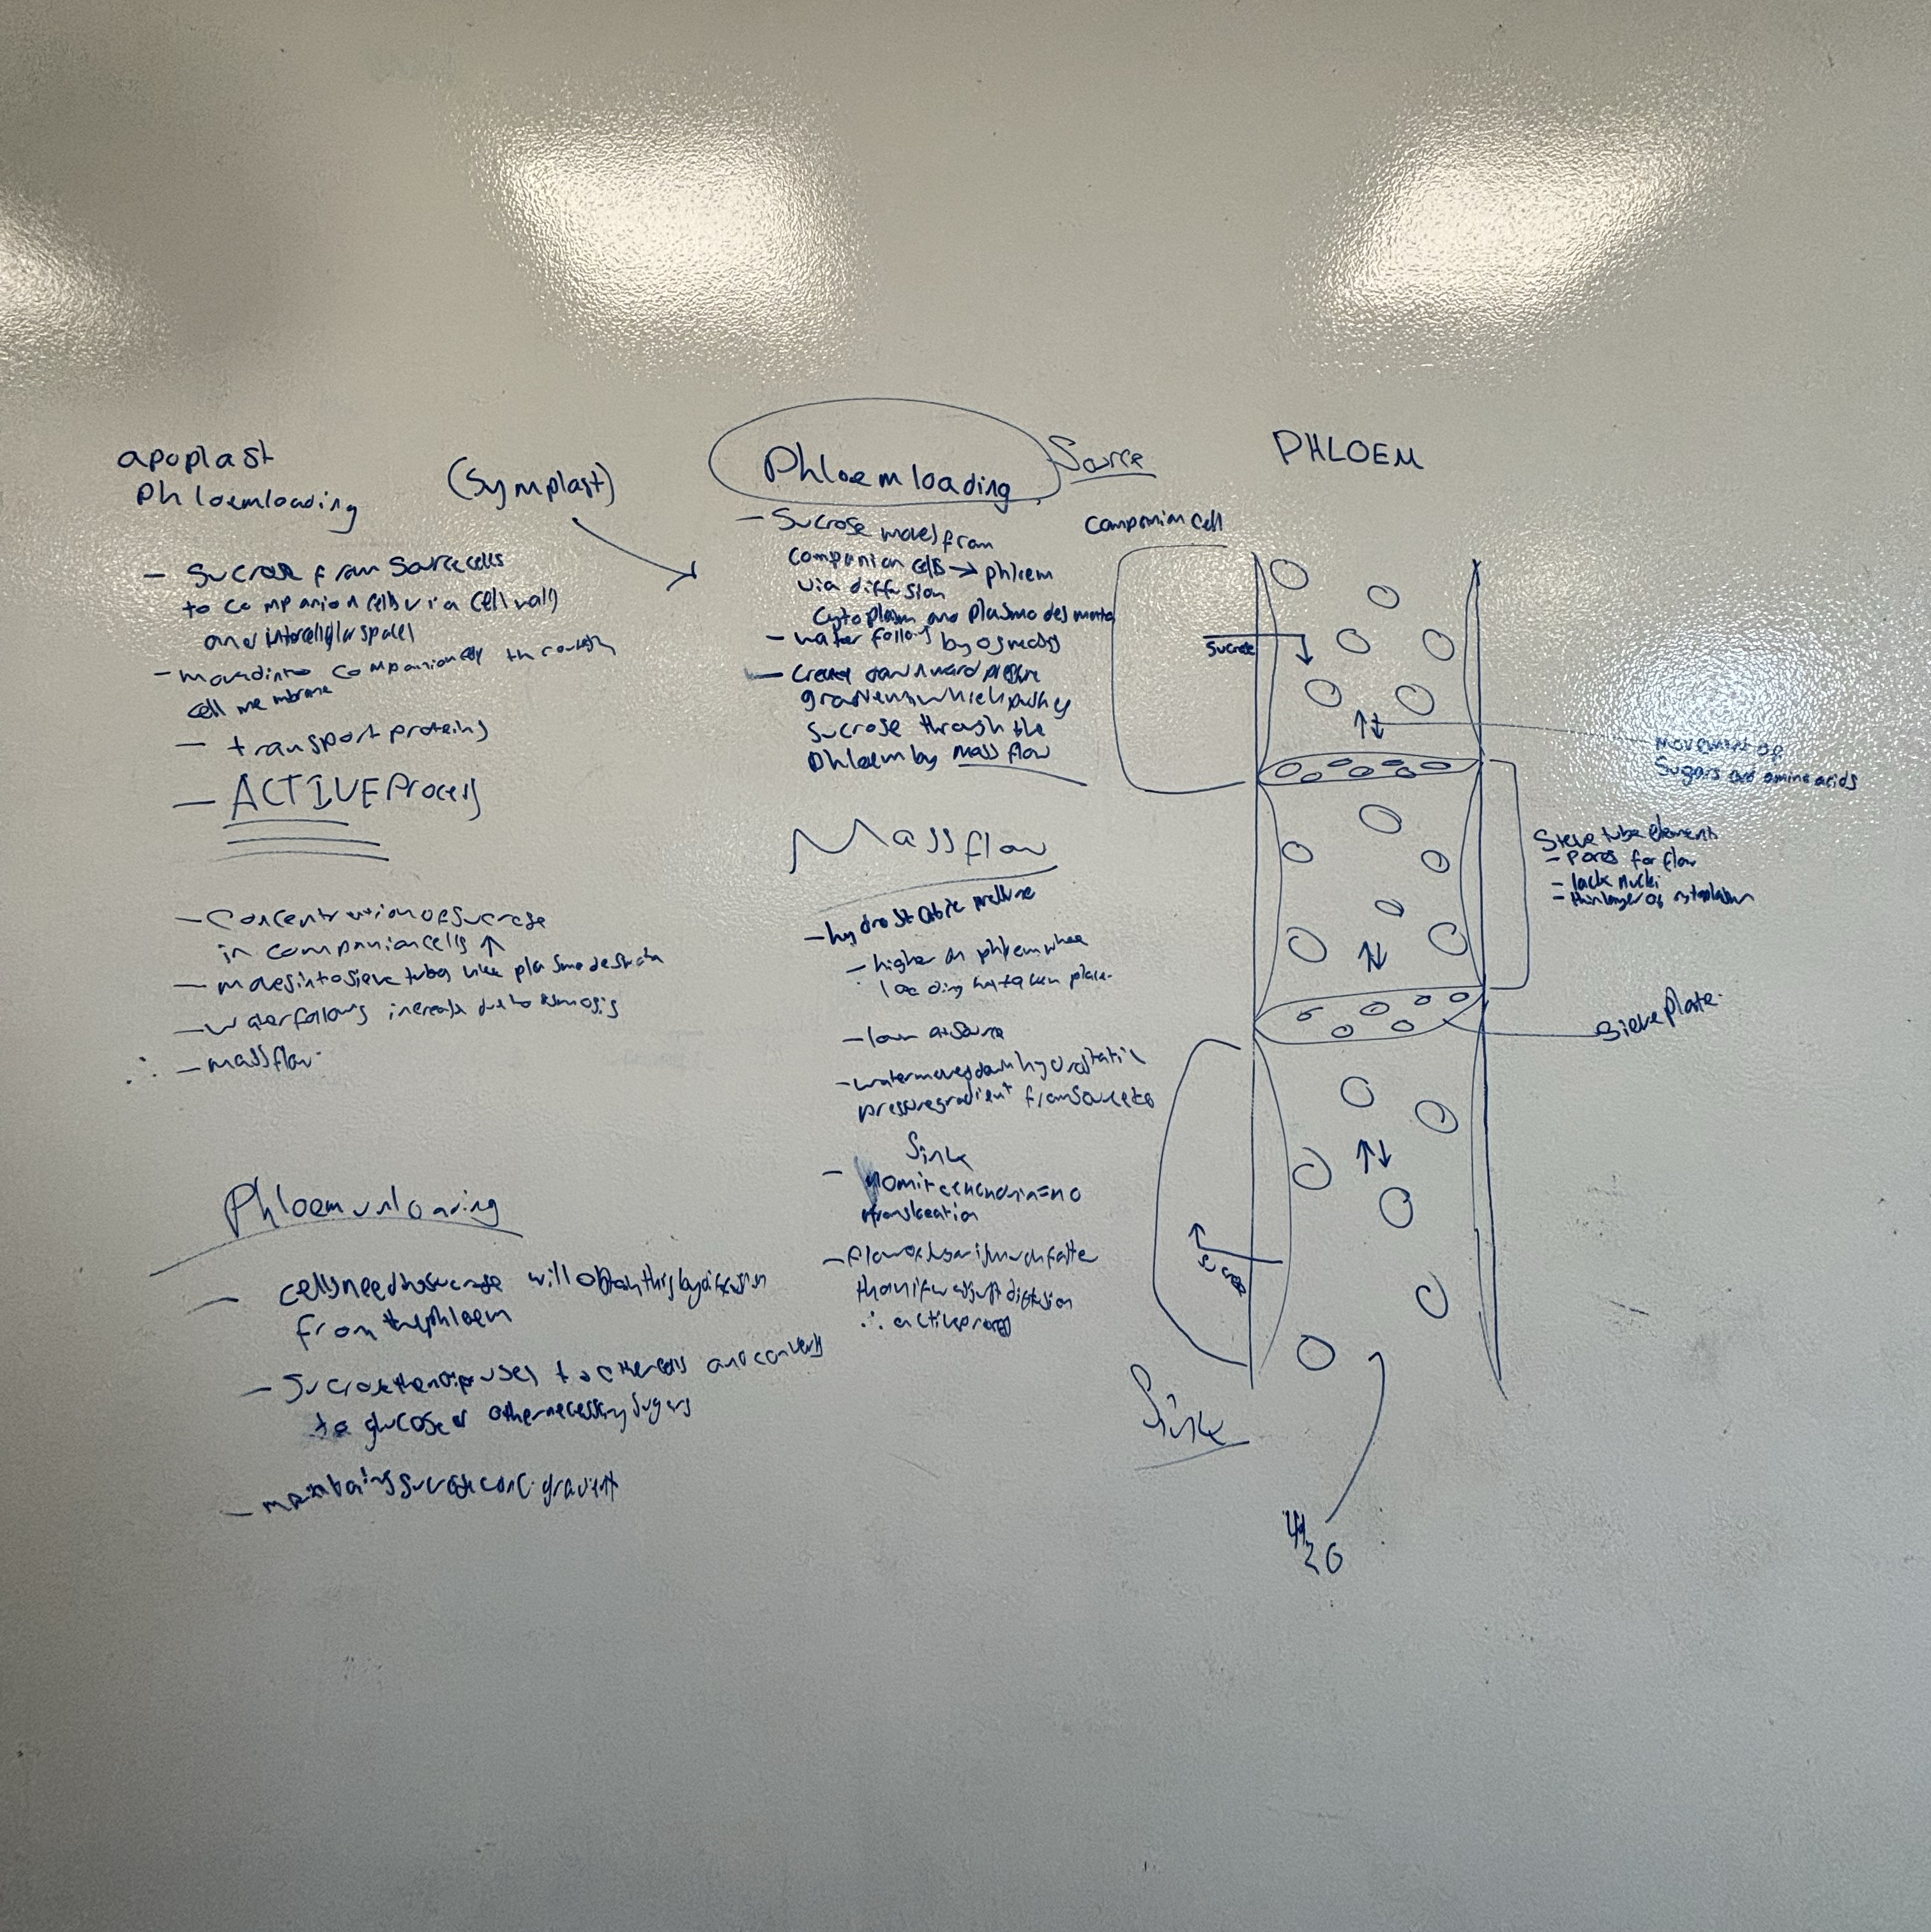 apoplast
Phloemloading
- Sucrose from Source cells
to companion cells via cell walls
and intercellular spaces
- moved into companion cell through
cell membrane
- transport proteins
- ACTIVE Process
- Concentration of Sucrose
in companion cells ↑
- moves into sieve tubes
- water follows increase due to osmosis
∴ - mass flow
Phloem unloading
- cells needing sucrose will obtain this by diffusion
from the phloem
- Sucrose then diffuses to other cells and converts
to glucose or other necessary sugars
- maintains sucrose conc. gradient
(Symplast)
Phloem loading
- Sucrose moves from
companion cells → phloem
via diffusion
Cytoplasm and plasmodesmata
- water follows by osmosis
- Creates downward pressure
gradient which pushes
sucrose through the
phloem by mass flow
Mass flow
- hydrostatic pressure
- higher in phloem where
loading has taken place.
- low at source
- water moves down hydrostatic
pressure gradient from source to
Sink
- no mitochondria = no
translocation
- flow of sugar is much faster
than if it was just diffusion
∴ active process
Source
PHLOEM
Companion cell
Sucrose
movement of
Sugars and amino acids
Sieve tube element
- Pores for flow
- lack nuclei
- thin layer of cytoplasm
Sieve plate
Sucrose
Sink
H2O